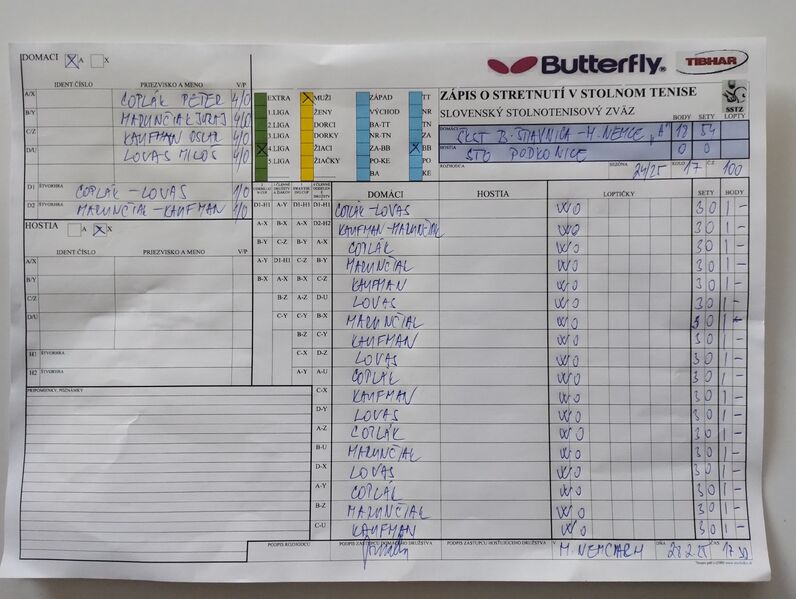 DOMÁCI X A X
Butterfly® TIBHAR
IDENT ČÍSLO PRIEZVISKO A MENO V/P
A/X COPLÁK PETER 4/0
B/Y MARUNČIAK JURAJ 4/0
C/Z KAUFMAN OSKAR 4/0
D/U LOVAS MILOŠ 4/0
D1 ŠTVORHRA COPLÁK - LOVAS 1/0
D2 ŠTVORHRA MARUNČIAK - KAUFMAN 1/0
HOSTIA A X X
IDENT ČÍSLO PRIEZVISKO A MENO V/P
A/X
B/Y
C/Z
D/U
H1 ŠTVORHRA
H2 ŠTVORHRA
PRIPOMIENKY, POZNÁMKY
EXTRA X MUŽI ZÁPAD TT
1.LIGA ŽENY VÝCHOD NR
2.LIGA DORCI BA-TT TN
3.LIGA DORKY NR-TN ZA
X 4.LIGA ŽIACI ZA-BB X BB
5.LIGA ŽIAČKY PO-KE PO
BA KE
ZÁPIS O STRETNUTÍ V STOLNOM TENISE
SLOVENSKÝ STOLNOTENISOVÝ ZVÄZ
SSTZ
BODY SETY LOPTY
DOMÁCI B. ŠTIAVNICA - M. NEMCE "A" 18 54
HOSTIA STO PODKONICE 0 0
ROZHODCA SEZÓNA 24/25 KOLO 17 Č.Z. 100
DOMÁCI HOSTIA LOPTIČKY SETY BODY
D1-H1 A-Y D1-H1 D1-H1 COPLÁK - LOVAS WO 3 0 1 -
A-X B-X A-X D2-H2 KAUFMAN - MARUNČIAK WO 3 0 1 -
B-Y C-Z B-Y A-X COPLÁK WO 3 0 1 -
A-Y D1-H1 C-Z B-Y MARUNČIAK WO 3 0 1 -
B-X A-X B-X C-Z KAUFMAN WO 3 0 1 -
B-Z A-Z D-U LOVAS WO 3 0 1 -
C-Y C-Y B-X MARUNČIAK WO 3 0 1 -
B-Z C-Y KAUFMAN WO 3 0 1 -
C-X D-Z LOVAS WO 3 0 1 -
A-Y A-U COPLÁK WO 3 0 1 -
C-X KAUFMAN WO 3 0 1 -
D-Y LOVAS WO 3 0 1 -
A-Z COPLÁK WO 3 0 1 -
B-U MARUNČIAK WO 3 0 1 -
D-X LOVAS WO 3 0 1 -
A-Y COPLÁK WO 3 0 1 -
B-Z MARUNČIAK WO 3 0 1 -
C-U KAUFMAN WO 3 0 1 -
PODPIS ROZHODCU PODPIS ZÁSTUPCU DOMÁCEHO DRUŽSTVA PODPIS ZÁSTUPCU HOSŤUJÚCEHO DRUŽSTVA V M. NEMCIACH DŇA 28.2.25 ČAS 17 30